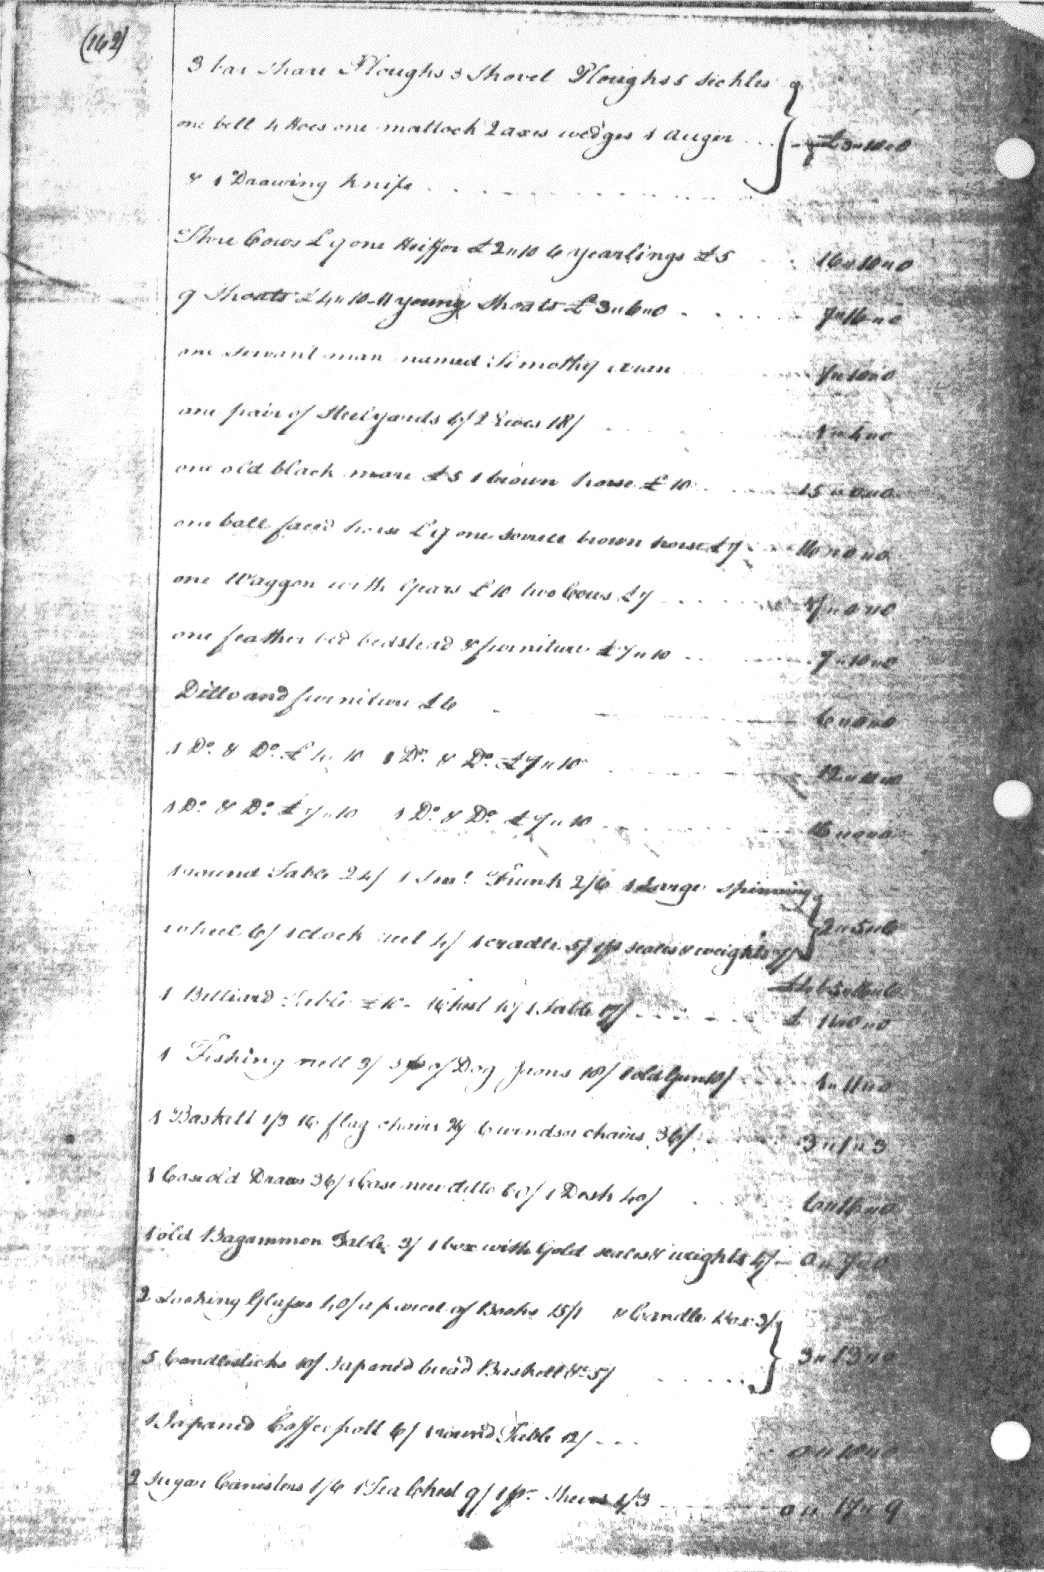 (162)
3 bar share Ploughs 3 Shovel Ploughs 5 sickles
one bell 4 Hoes one mattock 2 axes wedges 1 Auger £3"10"0
& 1 Drawing Knife
Three Cows £9 one Heiffer £2"10 6 yearlings £5 16"10"0
9 Shoats £4"10 11 young Shoats £3"6"0 7"16"0
one servant man named Timothy 7"10"0
one pair of Steelyards 6/ 2 Ewes 18/ 1"4"0
one old black mare £5 1 brown horse £10 15"0"0
one ball faced horse £9 one brown horse £7 16"0"0
one Waggon with Gears £10 two Cows £7 17"0"0
one feather bed bedstead & furniture £7"10 7"10"0
Ditto and furniture £6 6"0"0
1 Do. & Do. £4"10 1 Do. & Do. £7"10 12"0"0
1 Do. & Do. £7"10 1 Do. & Do. £7"10 15"0"0
1 round Table 24/ 1 Sml. Trunk 2/6 1 Large spinning
wheel 6/ 1 clock reel 4/ 1 cradle 5/ 1 pr scales & weights 2"5"6
1 Billiard Table £10 1 Table
1 Fishing nett 3/ 3 pr of Dog Irons 18/ 1 old Gun 10/ 1"11"0
1 Baskett 1/3 16 flag chairs 24/ 6 windsor chairs 36/ 3"1"3
1 Case old Draws 36/ 1 Case new ditto 60/ 1 Desk 40/ 6"16"0
1 old Bagammon Table 3/ 1 box with Gold scales & weights 4/ 0"7"0
2 Looking Glasses 40/ a parcel of Books 15/ & Candle Box 3/
5 Candlesticks 10/ Japaned bread Baskett &c 5/ 3"13"0
1 Japaned Coffee pott 6/ 1 round Table 12/ 0"18"0
2 Sugar Canisters 1/6 1 Tea Chest 9/ 1 pr. 0"17"9